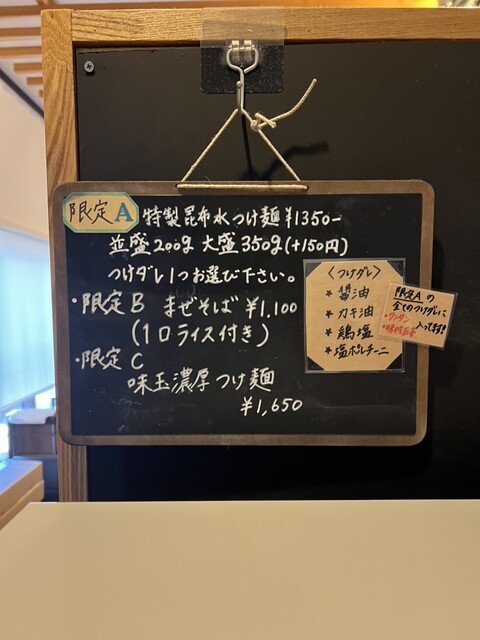 限定A 特製昆布水つけ麺¥1350-
並盛200g 大盛350g(+150円)
つけダレ1つお選び下さい。
・限定B まぜそば ¥1,100
(1口ライス付き)
・限定C
味玉濃厚つけ麺
¥1,650
〈つけダレ〉
* 醤油
* カキ油
* 鶏塩
* 塩ポルチーニ
限定Aの
全てのつけダレに
・ワンタン
入ってます!